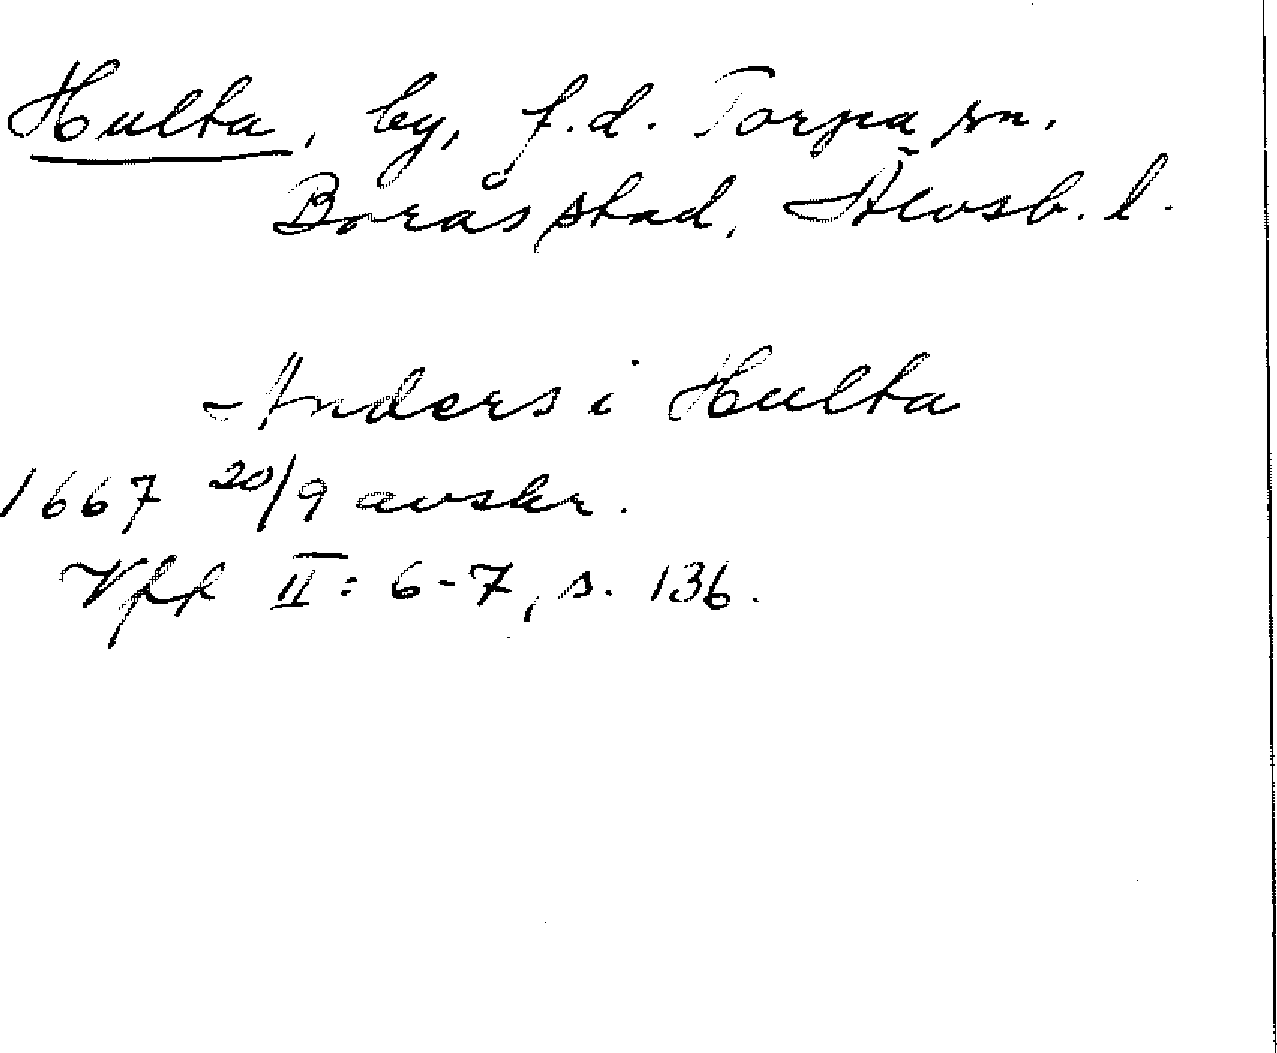 Hulta, by, f.d. Torpa sn.
Borås stad, Älvsb. l.
Anders i Hulta
1667 20/9 avskr.
Vff II: 6-7, s. 136.